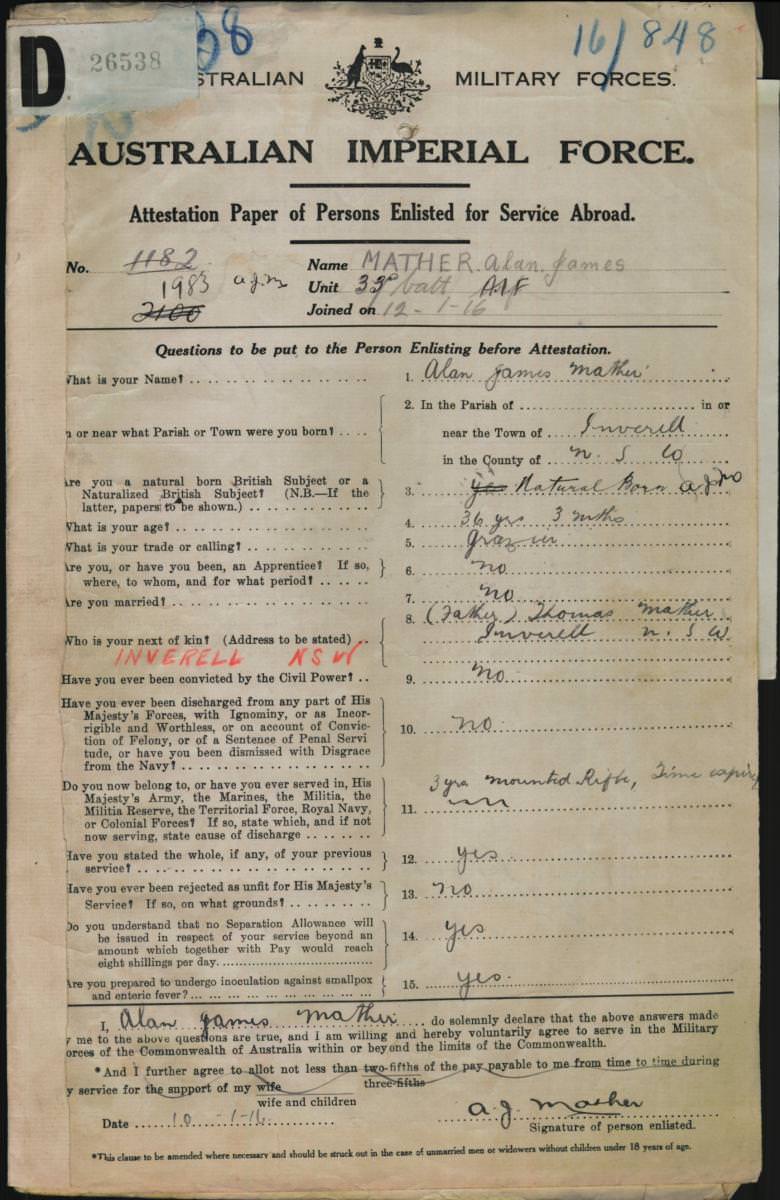 D 26538 68 16/848
STRALIAN MILITARY FORCES.
AUSTRALIAN IMPERIAL FORCE.
Attestation Paper of Persons Enlisted for Service Abroad.
No. 1182 Name MATHER. Alan James
1983 a.j.m Unit 33rd Batt AIF
2100 Joined on 12-1-16
Questions to be put to the Person Enlisting before Attestation.
What is your Name? 1. Alan James Mather
2. In the Parish of in or
n or near what Parish or Town were you born? near the Town of Inverell
in the County of N. S. W
Are you a natural born British Subject or a
Naturalized British Subject? (N.B.—If the 3. yes Natural Born
latter, papers to be shown.)
What is your age? 4. 36 yrs 3 mths
What is your trade or calling? 5. Grazier
Are you, or have you been, an Apprentice? If so, 6. no
where, to whom, and for what period?
Are you married? 7. No
8. (Father) Thomas Mather
Who is your next of kin? (Address to be stated) Inverell N. S W
INVERELL NSW
Have you ever been convicted by the Civil Power? 9. No
Have you ever been discharged from any part of His
Majesty's Forces, with Ignominy, or as Incor-
rigible and Worthless, or on account of Convic-
tion of Felony, or of a Sentence of Penal Servi 10. No
tude, or have you been dismissed with Disgrace
from the Navy?
Do you now belong to, or have you ever served in, His 3 yrs Mounted Rifle, Time expir
Majesty's Army, the Marines, the Militia, the
Militia Reserve, the Territorial Force, Royal Navy, 11.
or Colonial Forces? If so, state which, and if not
now serving, state cause of discharge
Have you stated the whole, if any, of your previous 12. yes
service?
Have you ever been rejected as unfit for His Majesty's 13. No
Service? If so, on what grounds?
Do you understand that no Separation Allowance will
be issued in respect of your service beyond an 14. yes
amount which together with Pay would reach
eight shillings per day.
Are you prepared to undergo inoculation against smallpox 15. yes.
and enteric fever?
I, Alan James Mather do solemnly declare that the above answers made
y me to the above questions are true, and I am willing and hereby voluntarily agree to serve in the Military
orces of the Commonwealth of Australia within or beyond the limits of the Commonwealth.
*And I further agree to allot not less than two-fifths of the pay payable to me from time to time during
three-fifths
y service for the support of my wife
wife and children
Date 10-1-16 A. J. Mather
Signature of person enlisted.
*This clause to be amended where necessary and should be struck out in the case of unmarried men or widowers without children under 18 years of age.